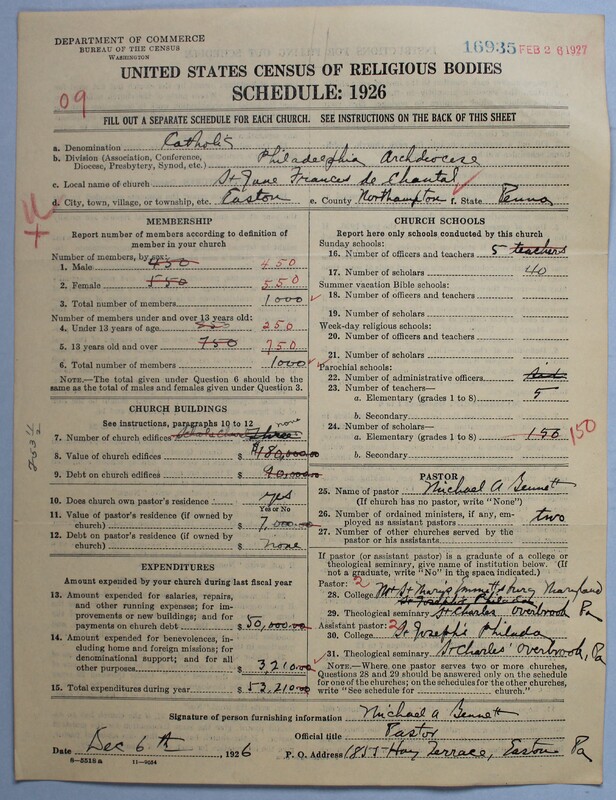 DEPARTMENT OF COMMERCE
BUREAU OF THE CENSUS
WASHINGTON
16935 FEB 26 1927
UNITED STATES CENSUS OF RELIGIOUS BODIES
SCHEDULE: 1926
09
FILL OUT A SEPARATE SCHEDULE FOR EACH CHURCH. SEE INSTRUCTIONS ON THE BACK OF THIS SHEET
a. Denomination Catholic
b. Division (Association, Conference, Diocese, Presbytery, Synod, etc.) Philadelphia Archdiocese
c. Local name of church St Jane Frances de Chantal
d. City, town, village, or township, etc. Easton e. County Northampton f. State Penna
MEMBERSHIP
Report number of members according to definition of member in your church
Number of members, by sex:
1. Male 450 450
2. Female 550 550
3. Total number of members 1000
Number of members under and over 13 years old:
4. Under 13 years of age 250
5. 13 years old and over 750 750
6. Total number of members 1000
NOTE.—The total given under Question 6 should be the same as the total of males and females given under Question 3.
CHURCH BUILDINGS
See instructions, paragraphs 10 to 12
none
7. Number of church edifices three
8. Value of church edifices $ 180,000.00
9. Debt on church edifices $ 90,000.00
10. Does church own pastor's residence yes
Yes or No
11. Value of pastor's residence (if owned by church) $ 7,000.00
12. Debt on pastor's residence (if owned by church) $ none
EXPENDITURES
Amount expended by your church during last fiscal year
13. Amount expended for salaries, repairs, and other running expenses; for improvements or new buildings; and for payments on church debt $ 50,000.00
14. Amount expended for benevolences, including home and foreign missions; for denominational support; and for all other purposes $ 3,210.00
15. Total expenditures during year $ 53,210.00
CHURCH SCHOOLS
Report here only schools conducted by this church
Sunday schools:
16. Number of officers and teachers 5 teachers
17. Number of scholars 40
Summer vacation Bible schools:
18. Number of officers and teachers
19. Number of scholars
Week-day religious schools:
20. Number of officers and teachers
21. Number of scholars
Parochial schools:
22. Number of administrative officers
23. Number of teachers—
a. Elementary (grades 1 to 8) 5
b. Secondary
24. Number of scholars—
a. Elementary (grades 1 to 8) 150 150
b. Secondary
PASTOR
25. Name of pastor Michael A Bennett
(If church has no pastor, write "None")
26. Number of ordained ministers, if any, employed as assistant pastors two
27. Number of other churches served by the pastor or his assistants
If pastor (or assistant pastor) is a graduate of a college or theological seminary, give name of institution below. (If not a graduate, write "No" in the space indicated.)
Pastor: 2
28. College Mt St Mary's Emmittsburg Maryland
St Joseph's Philada
29. Theological seminary St Charles Overbrook Pa
Assistant pastor: 2
30. College St Joseph's Philada
31. Theological seminary St Charles' Overbrook, Pa
NOTE.—Where one pastor serves two or more churches, Questions 28 and 29 should be answered only on the schedule for one of the churches; on the schedules for the other churches, write "See schedule for church."
Signature of person furnishing information Michael A Bennett
Official title Pastor
Date Dec 6th, 1926 P. O. Address 1855 Hay Terrace, Easton Pa
8—5518 a 11—9034